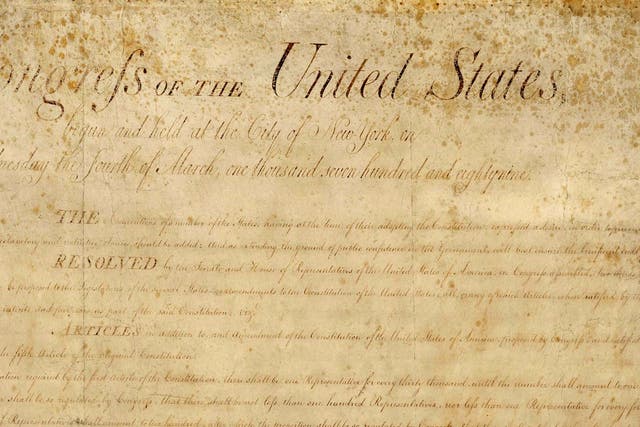 ongreſs OF THE United States,
begun and held at the City of New York, on
nesday the Fourth of March, one thousand seven hundred and eighty nine.
THE Conventions of a number of the States, having at the time of their adopting the Constitution, expressed a desire, in order to prevent
declaratory and restrictive clauses should be added: And as extending the ground of public confidence in the Government, will best ensure the beneficent ends
RESOLVED by the Senate and House of Representatives of the United States of America, in Congress assembled, two thirds
be proposed to the Legislatures of the several States, as amendments to the Constitution of the United States, all, or any of which Articles, when ratified by
intents and purposes, as part of the said Constitution; viz.
ARTICLES in addition to, and Amendment of the Constitution of the United States of America, proposed by Congress, and ratified
the fifth Article of the Original Constitution.
ration required by the first article of the Constitution, there shall be one Representative for every thirty thousand, until the number shall amount to one
shall be so regulated by Congress, that there shall be not less than one hundred Representatives, nor less than one Representative for every for
of Representatives shall amount to two hundred, after which the proportion shall be so regulated by Congress